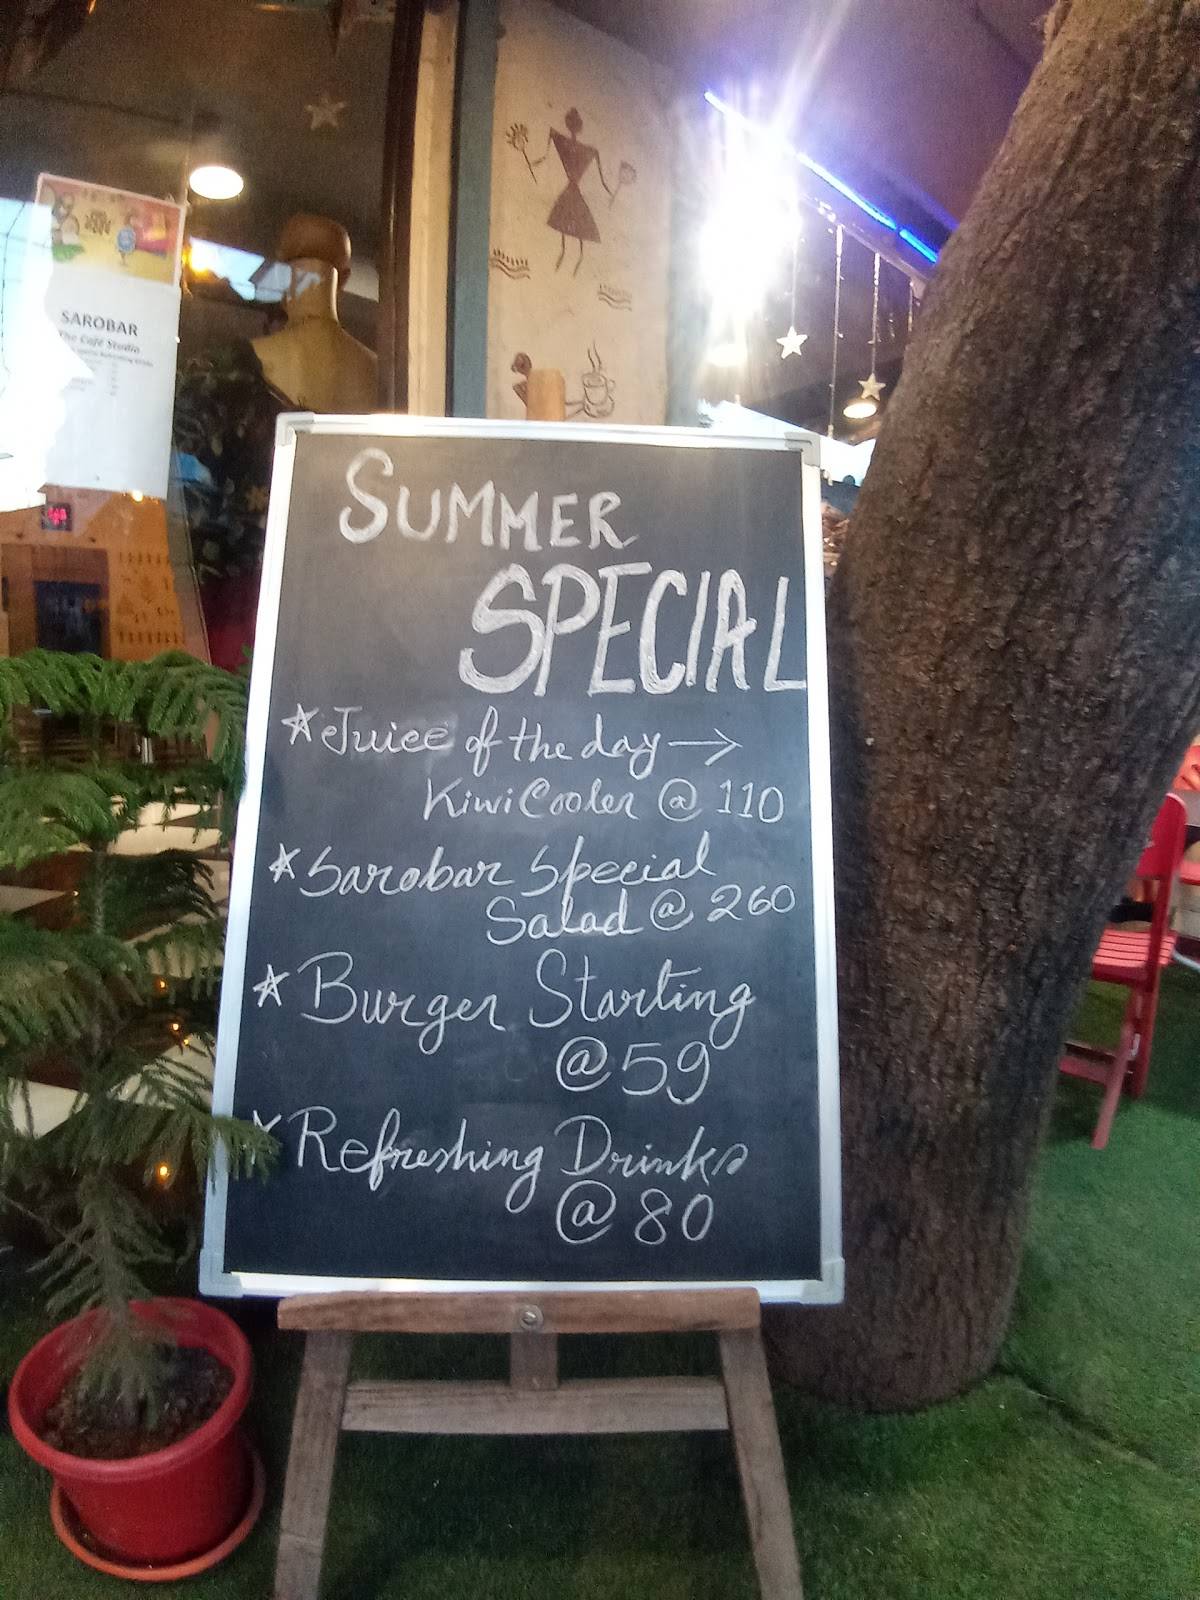 SAROBAR
The Café Studio
SUMMER
SPECIAL
☆ Juice of the day →
Kiwi Cooler @ 110
☆ Sarobar Special
Salad @ 260
☆ Burger Starting
@ 59
☆ Refreshing Drinks
@ 80